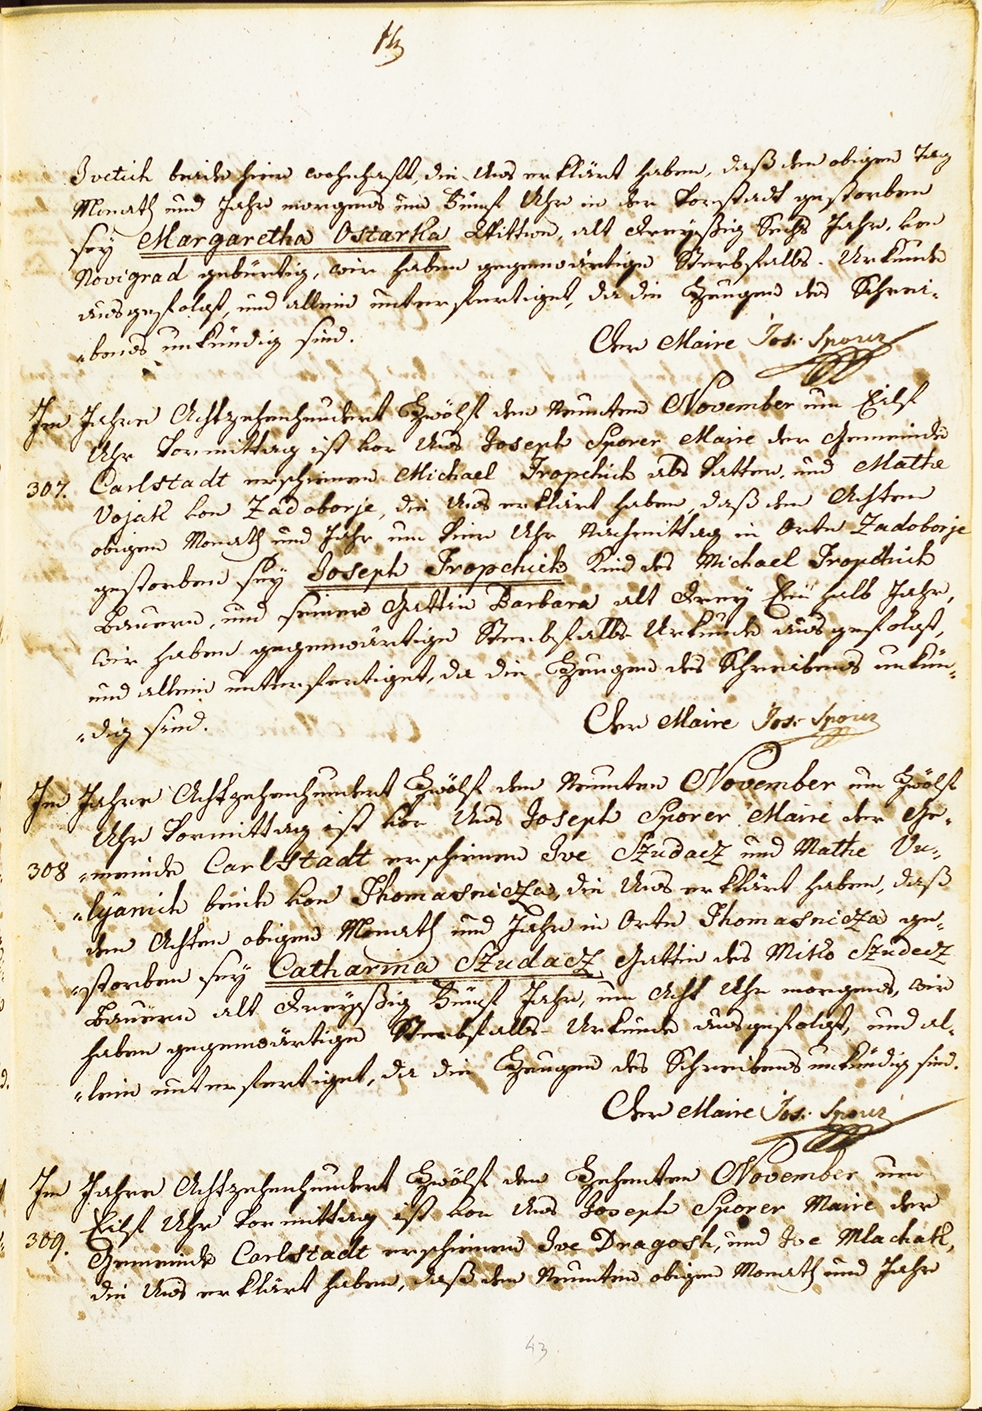 Ivetich beide hier wohnhaft, die Uns erklärt haben, daß den obigen Tag
Monath und Jahr morgens um Fünf Uhr in der Vorstadt gestorben
sey Margaretha Ostarka Wittwe, alt dreyßig Sechs Jahr, von
Novigrad gebürtig, wir haben gegenwärtige Sterbfalls-Urkunde
ausgefolgt, und allein unterfertiget, da die Zeugen des Schrei-
-bens unkündig sind. Der Maire Jos. Sporer
Im Jahre Achtzehenhundert Zwölf den Neunten November um Eilf
Uhr Vormittag ist vor Uns Joseph Sporer Maire der Gemeinde
307. Carlstadt erschienen Michael Tropchich als Vatter, und Mathe
Vojak von Zadoborje, die Uns erklärt haben, daß den Achten
obigen Monath und Jahr um Vier Uhr Nachmittag in Orte Zadoborje
gestorben sey Joseph Tropchich Kind des Michael Tropchich
Bauern, und seiner Gattin Barbara alt drey Ein halb Jahr,
wir haben gegenwärtige Sterbfalls-Urkunde ausgefolgt,
und allein unterfertiget, da die Zeugen des Schreibens unkün-
-dig sind. Der Maire Jos. Sporer
Im Jahre Achtzehenhundert Zwölf den Neunten November um Zwölf
Uhr Vormittag ist vor Uns Joseph Sporer Maire der Ge-
308 -meinde Carlstadt erschienen Ive Szudacz und Mathe Vu-
-lyanich beide von Thomasnicza, die Uns erklärt haben, daß
den Achten obigen Monath und Jahr in Orte Thomasnicza ge-
-storben sey Catharina Szudacz Gattin des Miko Szudecz
Bauern alt dreyßig Fünf Jahr, um Acht Uhr morgens, wir
haben gegenwärtige Sterbfalls-Urkunde ausgefolgt, und al-
-lein unterfertiget, da die Zeugen des Schreibens unkündig sind.
Der Maire Jos. Sporer
Im Jahre Achtzehenhundert Zwölf den Zehenten November um
Eilf Uhr Vormittag ist vor Uns Joseph Sporer Maire der
309. Gemeinde Carlstadt erschienen Ive Dragosh, und Ive Mlachak,
die Uns erklärt haben, daß den Neunten obigen Monath und Jahr
43